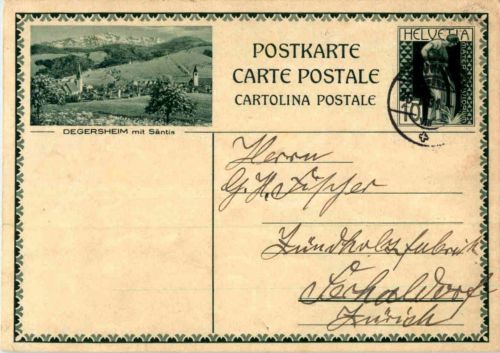 POSTKARTE
CARTE POSTALE
CARTOLINA POSTALE
HELVETIA
DEGERSHEIM mit Säntis
Herrn
G. H. Fischer
Zündholzfabrik
Zürich